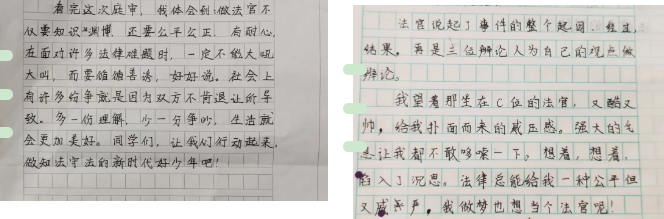 看完这次庭审，我体会到：做法官不
仅要知识渊博，还要公平公正，有耐心，
在面对许多法律难题时，一定不能大吼
大叫，而要循循善诱，好好说。社会上
有许多纷争就是因为双方不肯退让所导
致。多一份理解，少一分争吵，生活就
会更加美好。同学们，让我们行动起来，
做知法守法的新时代好少年吧！
法官说起了事件的整个起因、经过、
结果。再是三位辩论人为自己的观点做
辩论。
我望着那坐在C位的法官，又酷又
帅，给我扑面而来的威压感。强大的气
息让我都不敢哆嗦一下。想着，想着，
陷入了沉思。法律总能给我一种公平但
又威严，我做梦也想当个法官呢！